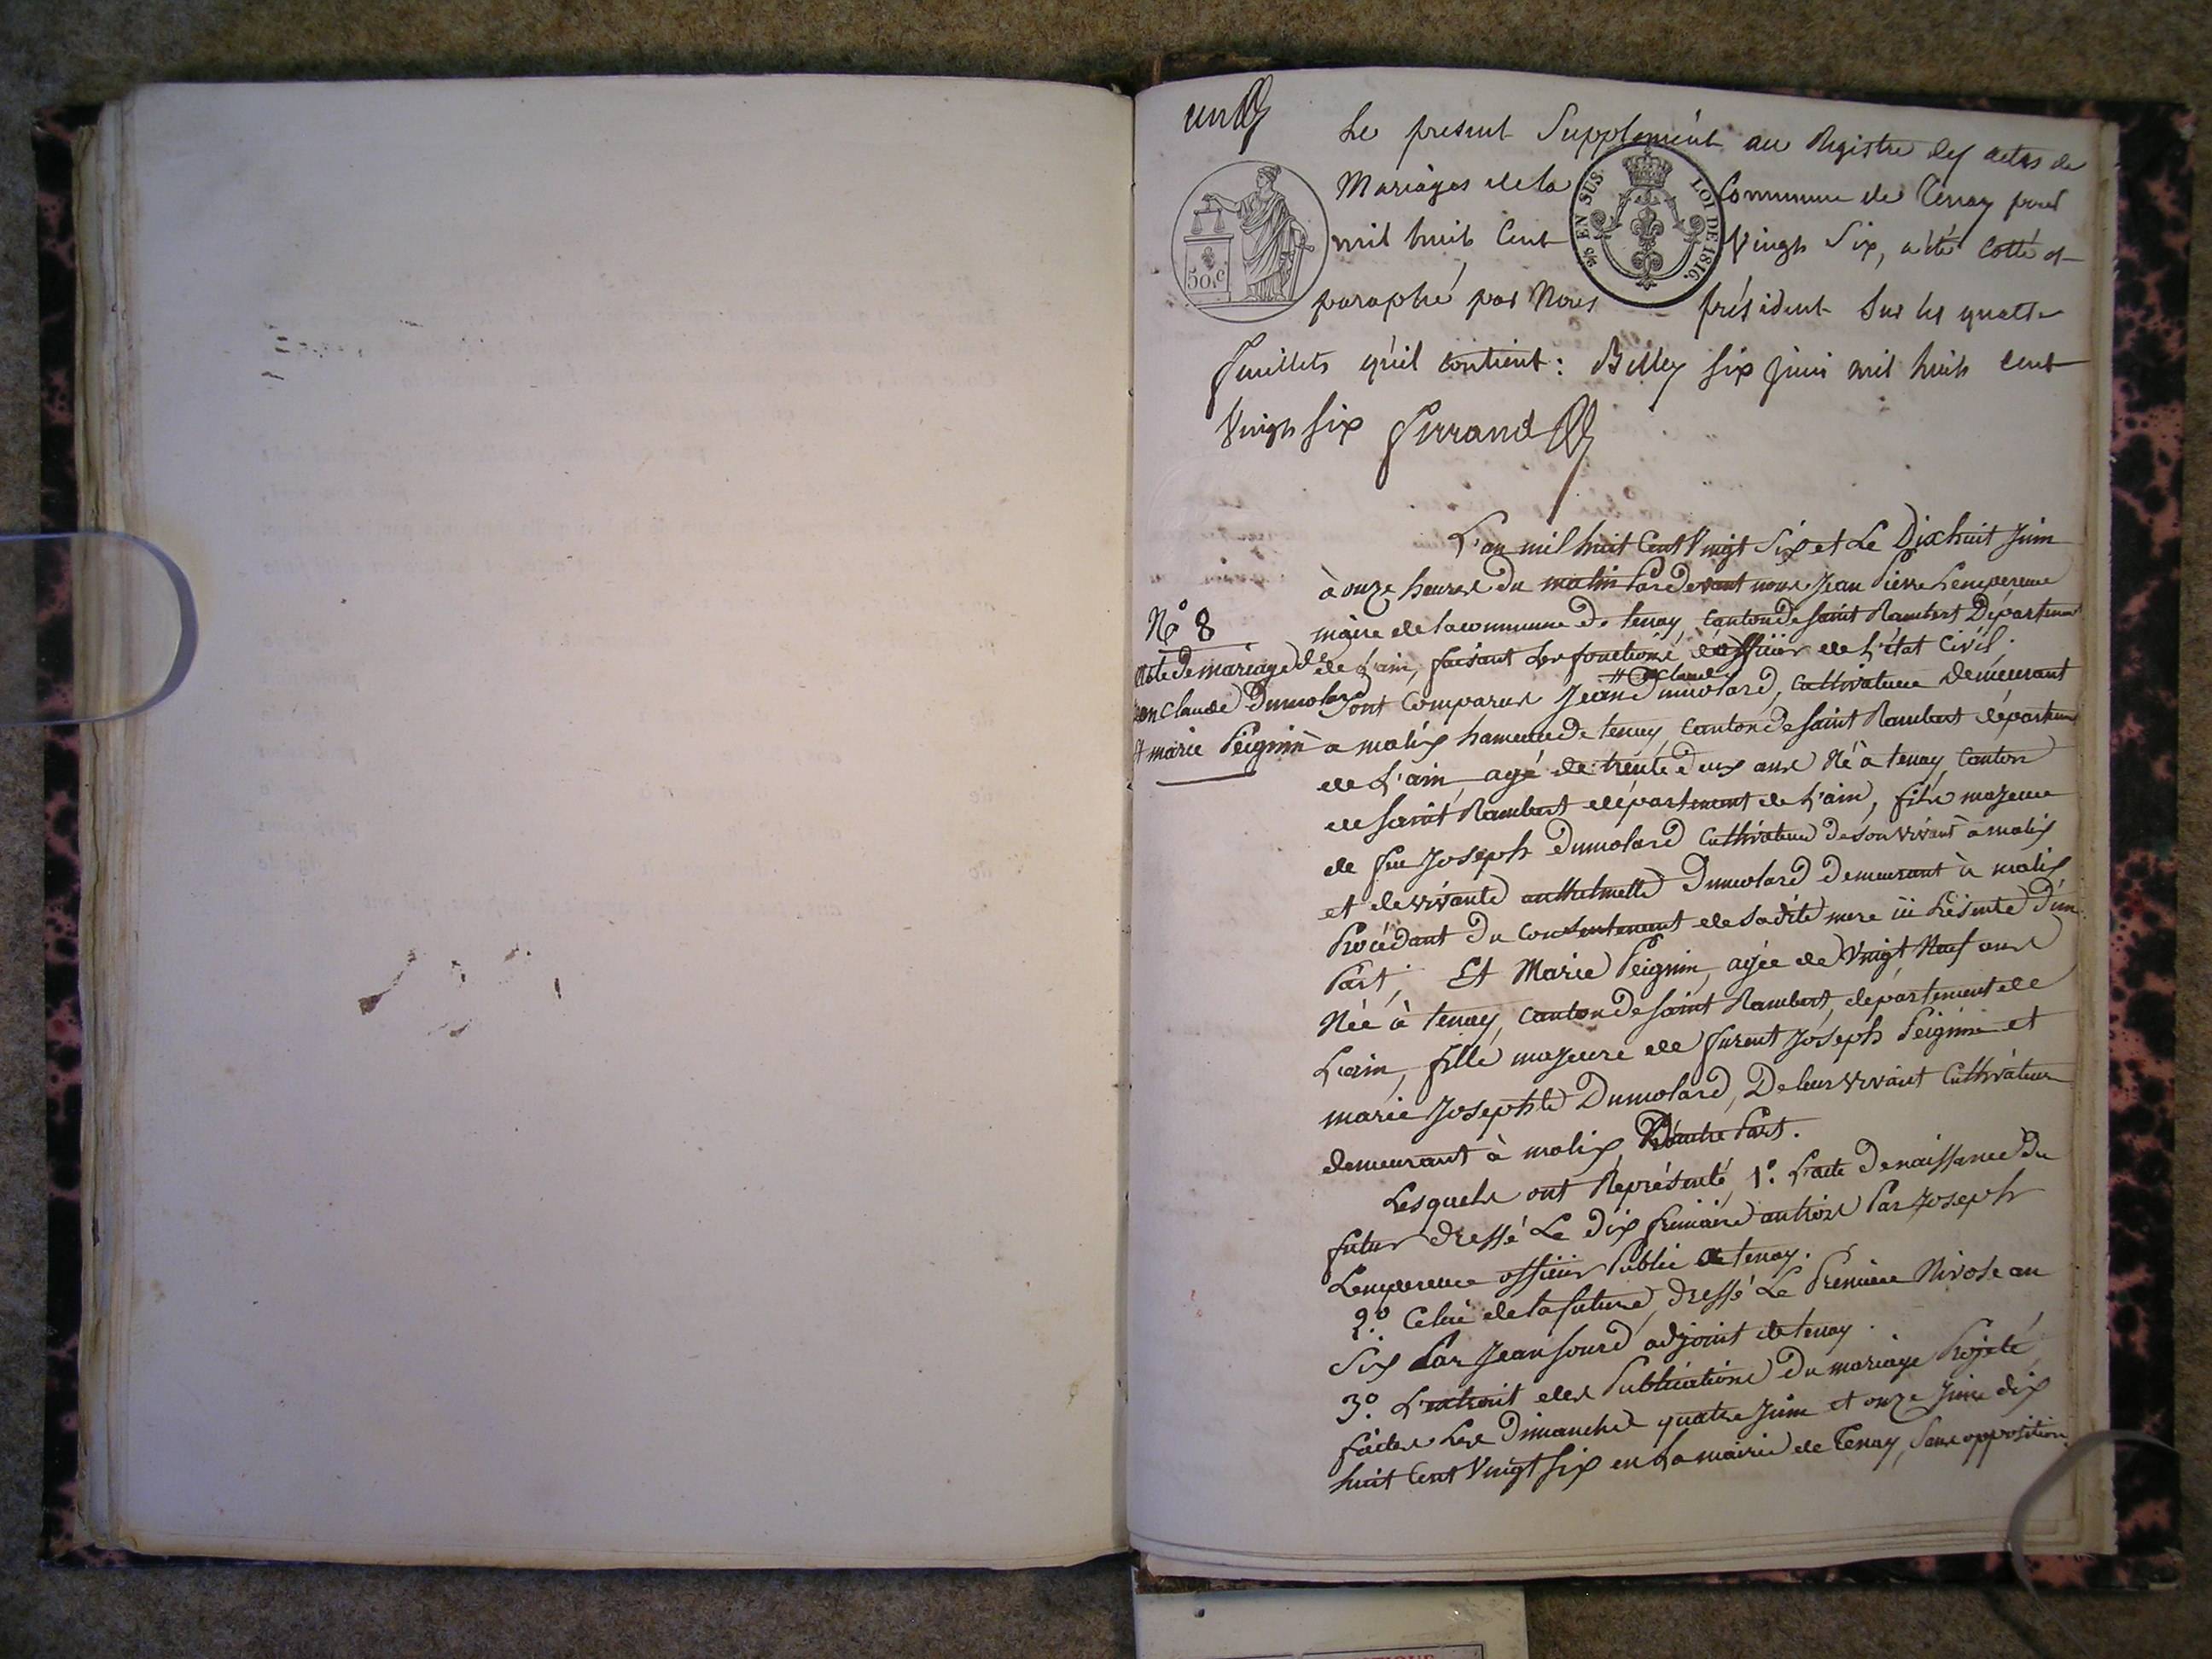 un
Le present Supplément au Registre des actes de
Mariages de la Commune de Tenay pour
mil huit Cent Vingt Six, a été cotté et
paraphé par Nous président sur les quatre
feuillets qu'il contient : Belley six juin mil huit cent
Vingt six Ferrand
50c
EN SUS. LOI DE 1816.
L'an mil huit Cent Vingt Six et Le Dixhuit Juin
à onze heures du matin Pardevant nous Jean Pierre Lempereur
maire de la commune de tenay, Canton de saint Rambert Département
de L'ain, faisant Les fonctions d'officier de L'état Civil.
Claude
ont Comparus Jean Dumolard, Cultivateur Demeurant
a malix hameau de tenay Canton de saint Rambert département
de L'ain, agé de trente deux ans Né à tenay, Canton
de saint Rambert département de L'ain, fils majeur
de feu Joseph Dumolard Cultivateur de son vivant à malix
et de vivante anthelmette Dumolard Demeurant à malix
Procédant du Consentement de sadite mere ici Présente D'une
Part, Et Marie Peignin, agée de Vingt Neuf ans
Née à tenay, Canton de saint Rambert, departement de
L'ain, fille majeure de furent Joseph Peignin et
marie Josephte Dumolard, De leur vivant Cultivateur
demeurant à malix, D'autre Part.
Lesquels ont Représenté, 1.° L'acte De naissance Du
futur dressé Le dix frimaire an trois Par Joseph
Lempereur officier Public de tenay.
2.° Celui de la future, dressé Le Premier Nivose an
Six Par Jean sourd adjoint de tenay.
3.° L'extrait des Publications Du mariage Projeté,
faites Les Dimanches quatre Juin et onze Juin dix
huit Cent Vingt six en La mairie de Tenay, sans opposition.
N.° 8
acte de mariage de
Jean Claude Dumolard
et marie Peignin